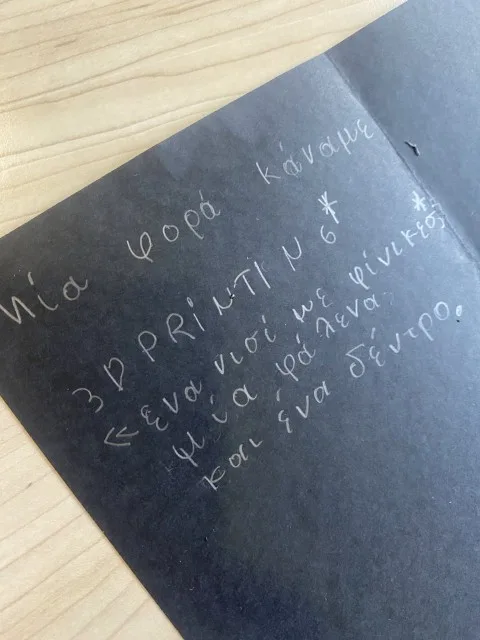 Μία φορά κάναμε
3D PRINTING *
«ένα νισί με φίνικες*
μία φάλενα
και ένα δέντρο.